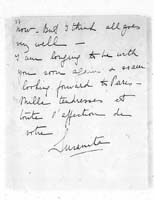 now - But I think all goes
very well -
I am longing to be with
you soon again & am
looking forward to Paris -
Mille tendresses et
toute l'affection de
votre